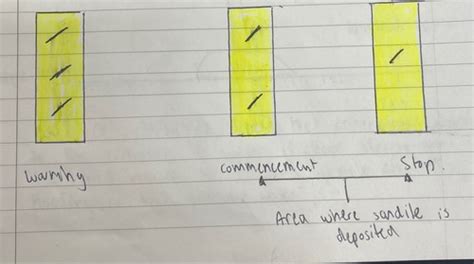 warning
commencement
Stop.
Area where sandile is
deposited